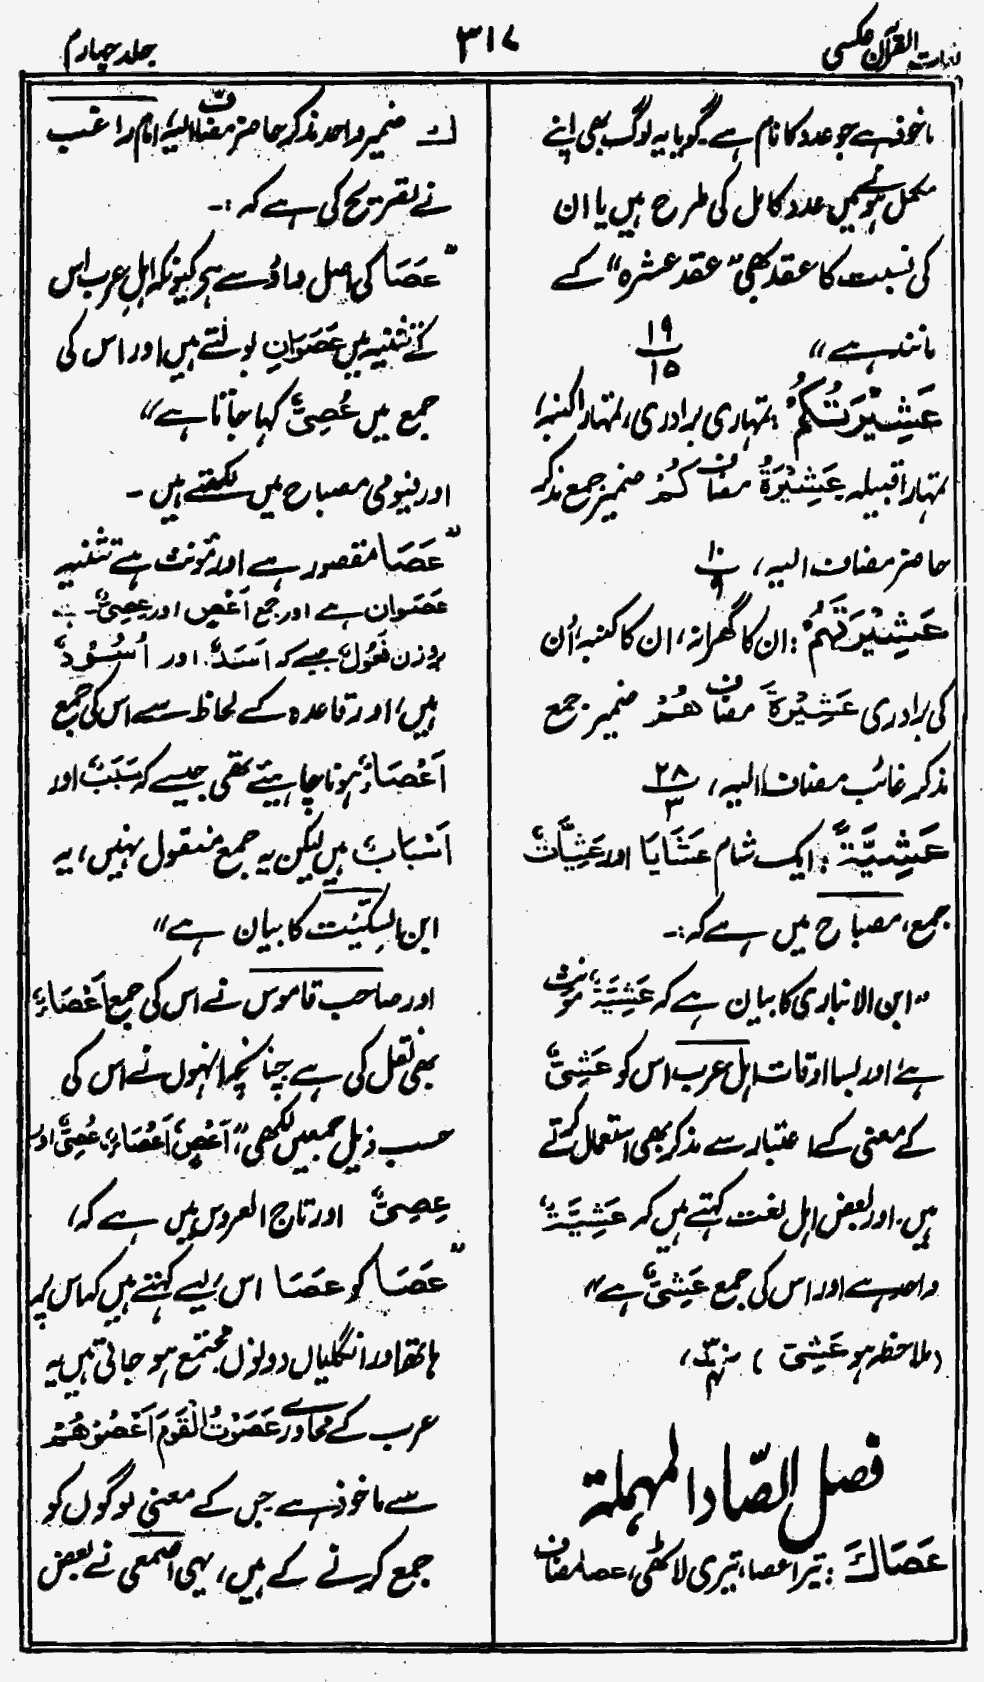 لغات القرآن عکسی
۳۱۷
جلد چہارم
ماخوذ ہے جو عدد کا نام ہے۔ گویا یہ لوگ بھی اپنے
مکمل ہونے میں عدد کامل کی طرح ہیں یا ان
کی نسبت کا عقد بھی "عقد عشرہ" کے
مانند ہے" ۱۹/۱۵
عَشِیْرَتُکُمْ: تمہاری برادری، تمہارا کنبہ،
تمہارا قبیلہ عَشِیْرَۃُ مضاف کُمْ ضمیر جمع مذکر
حاضر مضاف الیہ، ۱۰/۹
عَشِیْرَتَہُمْ: ان کا گھرانہ، ان کا کنبہ، ان
کی برادری عَشِیْرَۃَ مضاف ھُمْ ضمیر جمع
مذکر غائب مضاف الیہ، ۲۸/۳
عَشِیَّۃً: ایک شام عَشَایَا اور عَشِیَّاتٌ
جمع، مصباح میں ہے کہ:۔
"ابن الانباری کا بیان ہے کہ عَشِیَّۃٌ مؤنث
ہے اور بسا اوقات اہل عرب اس کو عَشِیٌّ
کے معنی کے اعتبار سے مذکر بھی استعمال کرتے
ہیں۔ اور بعض اہل لغت کہتے ہیں کہ عَشِیَّۃٌ
واحد ہے اور اس کی جمع عَشِیٌّ ہے"
(ملاحظہ ہو عَشِیّ) ۳۰/۴،
فصل الصّاد المہملۃ
عَصَاکَ: تیرا عصا، تیری لاٹھی، عصا مضاف
ک ضمیر واحد مذکر حاضر مضاف الیہ، امام راغب
نے تصریح کی ہے کہ:۔
"عَصَا کی اصل واؤ سے ہے کیونکہ اہل عرب اس
کے تثنیہ میں عَصَوَانِ بولتے ہیں اور اس کی
جمع میں عُصِیٌّ کہا جاتا ہے"
اور فیومی مصباح میں لکھتے ہیں۔
"عَصَا مقصور ہے اور مؤنث ہے تثنیہ
عَصَوانِ ہے اور جمع اَعْصٍ اور عِصِیٌّ۔ بر
وزن فُعُوْلٌ جیسے کہ اَسَدٌ اور اُسُوْدٌ
ہیں، اور قاعدہ کے لحاظ سے اس کی جمع
اَعْصَاءٌ ہونا چاہیئے تھی جیسے کہ سَبَبٌ اور
اَسْبَابٌ ہیں لیکن یہ جمع منقول نہیں، یہ
ابن السِکِّیْت کا بیان ہے"
اور صاحب قاموس نے اس کی جمع اَعْصَاءٌ
بھی نقل کی ہے چنانچہ انہوں نے اس کی
حسب ذیل جمعیں لکھی "اَعْصٍ، اَعْصَاءٌ، عُصِیٌّ اور
عِصِیٌّ اور تاج العروس میں ہے کہ،
"عَصَا کو عَصَا اس لیے کہتے ہیں کہ اس پر
ہاتھ اور انگلیاں دونوں مجتمع ہو جاتی ہیں یہ
عرب کے محاورے عَصَوْتُ الْقَوْمَ اَعْصُوْھُمْ
سے ماخوذ ہے جس کے معنی لوگوں کو
جمع کرنے کے ہیں، یہی اصمعی نے بعض